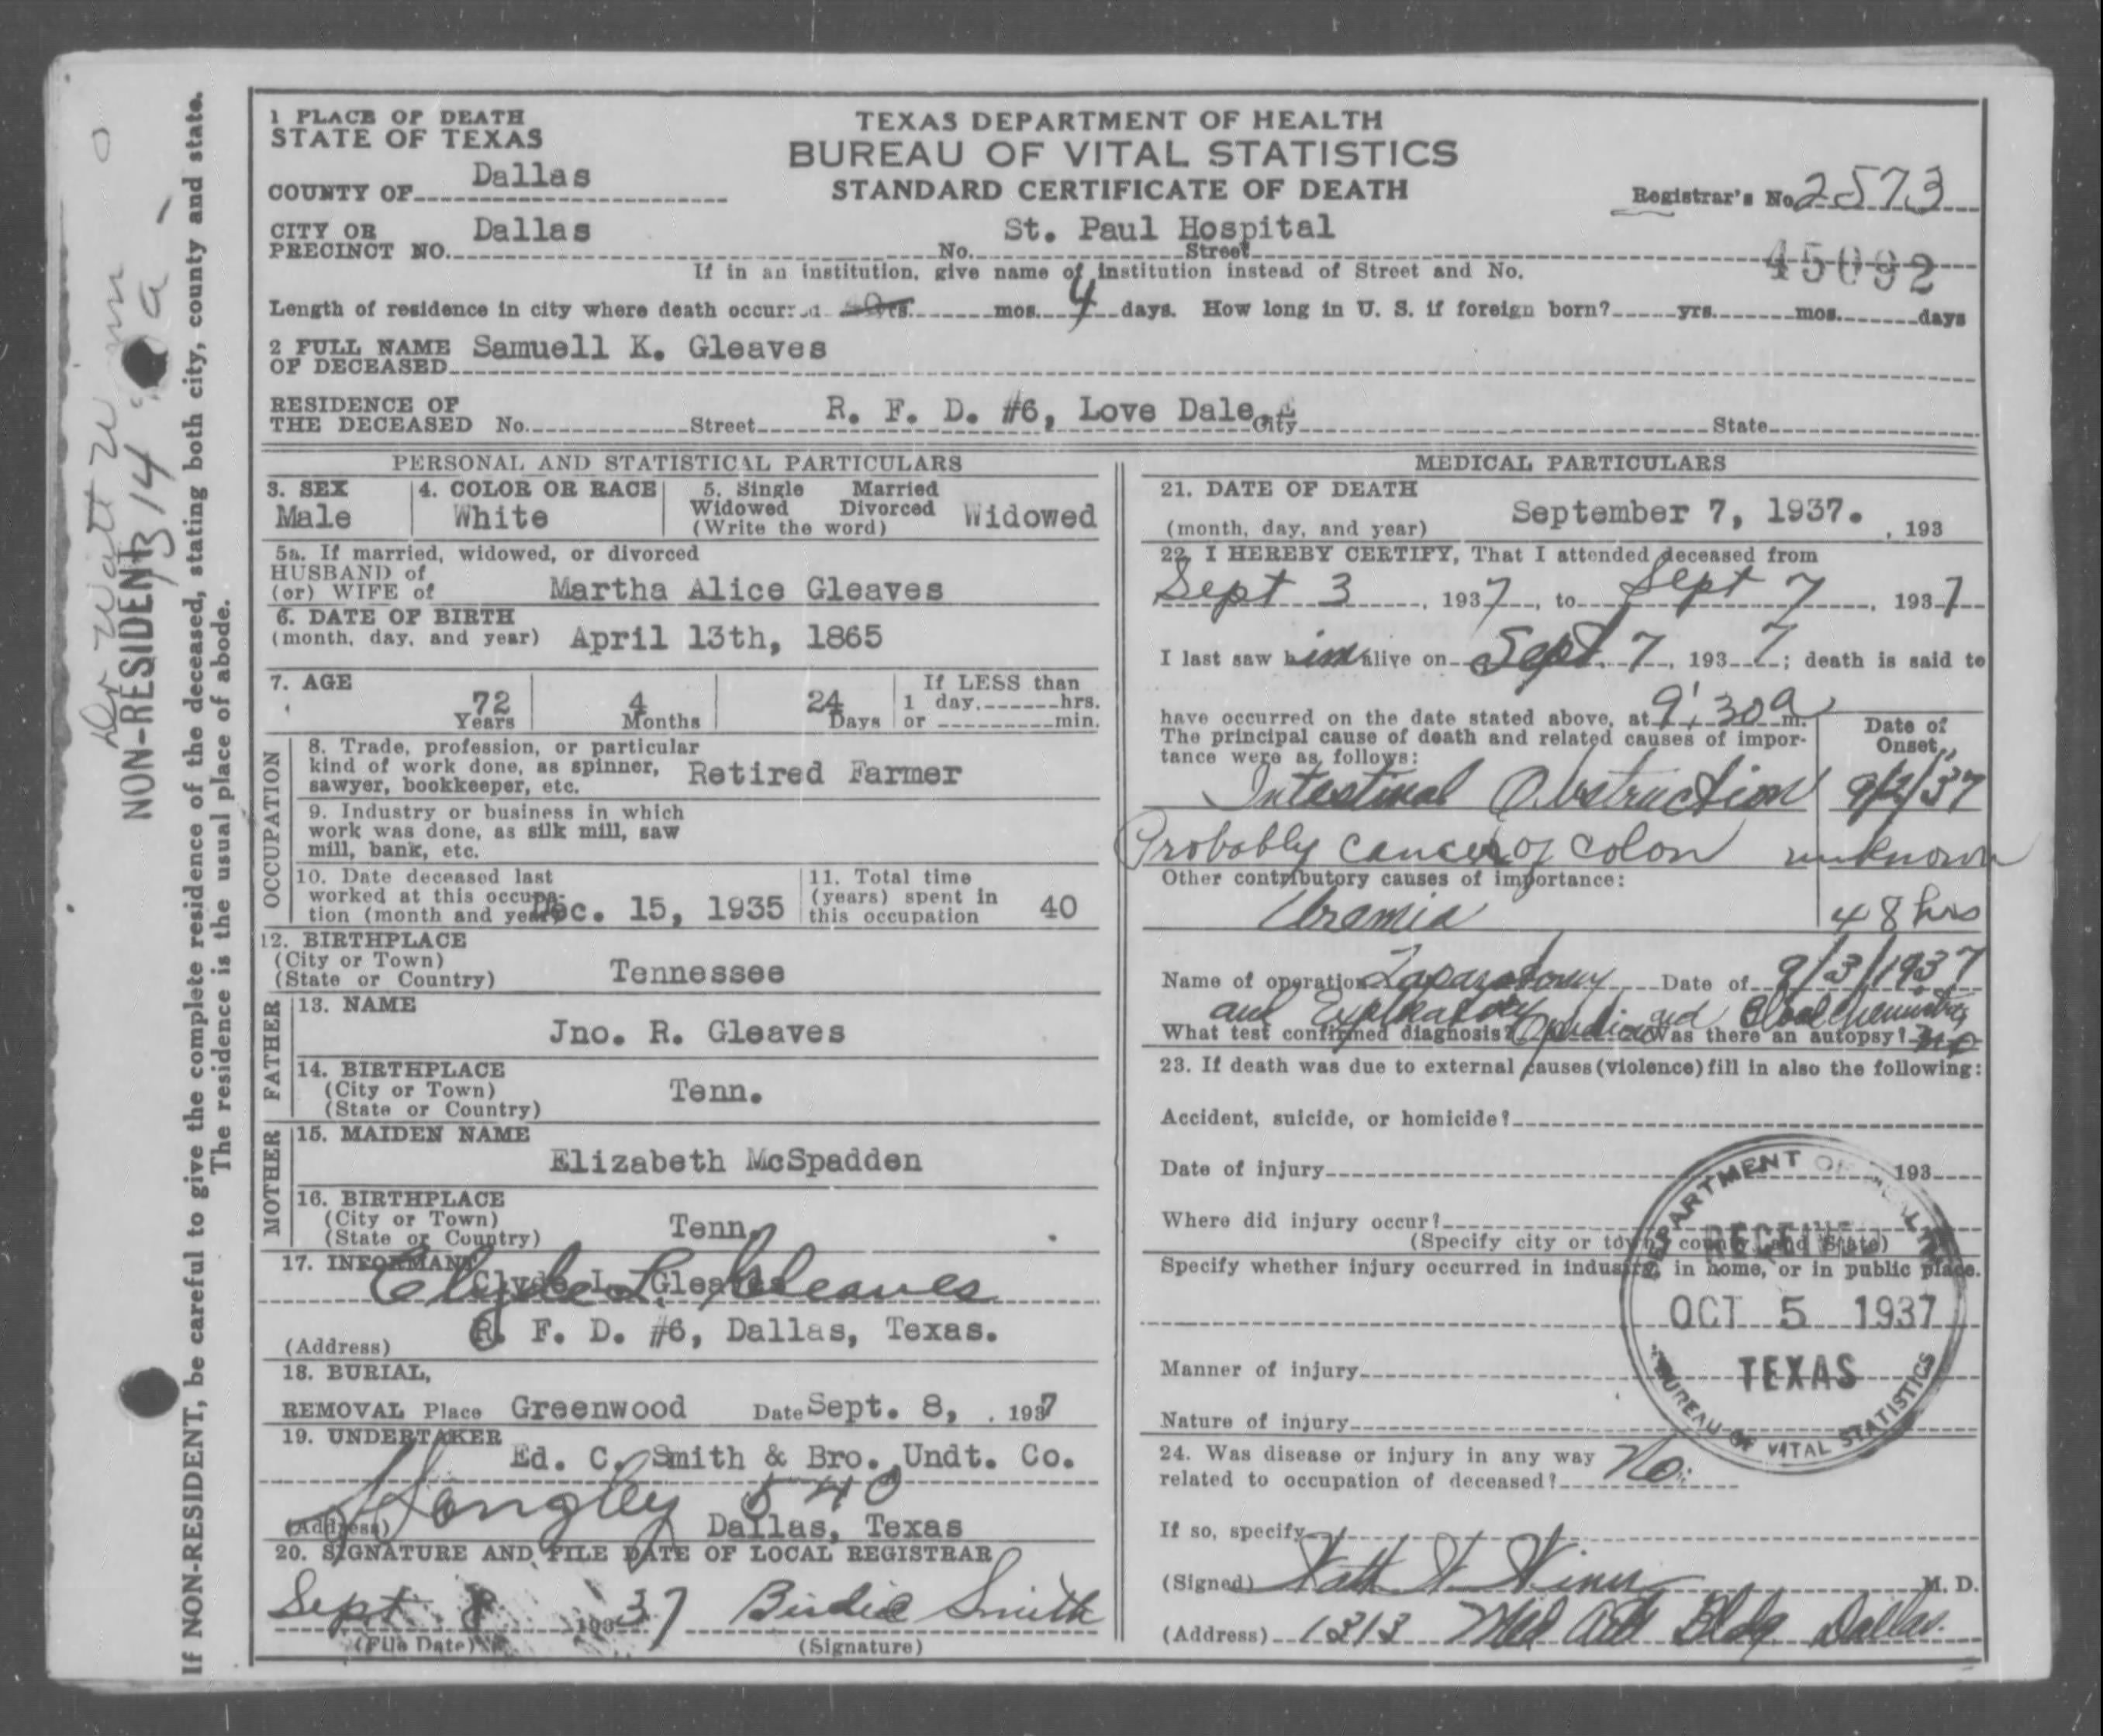 1 PLACE OF DEATH
STATE OF TEXAS
TEXAS DEPARTMENT OF HEALTH
BUREAU OF VITAL STATISTICS
STANDARD CERTIFICATE OF DEATH
COUNTY OF Dallas
Registrar's No. 2573
CITY OR
PRECINCT NO. Dallas No. St. Paul Hospital Street
45092
If in an institution, give name of institution instead of Street and No.
Length of residence in city where death occurred yrs. mos. 4 days. How long in U. S. if foreign born? yrs. mos. days
2 FULL NAME
OF DECEASED Samuell K. Gleaves
RESIDENCE OF
THE DECEASED No. Street R. F. D. #6, Love Dale, City State
PERSONAL AND STATISTICAL PARTICULARS
3. SEX
Male
4. COLOR OR RACE
White
5. Single Married
Widowed Divorced
(Write the word) Widowed
5a. If married, widowed, or divorced
HUSBAND of
(or) WIFE of Martha Alice Gleaves
6. DATE OF BIRTH
(month, day, and year) April 13th, 1865
7. AGE
72 Years
4 Months
24 Days
If LESS than
1 day, hrs.
or min.
OCCUPATION
8. Trade, profession, or particular
kind of work done, as spinner,
sawyer, bookkeeper, etc. Retired Farmer
9. Industry or business in which
work was done, as silk mill, saw
mill, bank, etc.
10. Date deceased last
worked at this occupa-
tion (month and year) Dec. 15, 1935
11. Total time
(years) spent in
this occupation 40
12. BIRTHPLACE
(City or Town)
(State or Country) Tennessee
FATHER
13. NAME
Jno. R. Gleaves
14. BIRTHPLACE
(City or Town)
(State or Country) Tenn.
MOTHER
15. MAIDEN NAME
Elizabeth McSpadden
16. BIRTHPLACE
(City or Town)
(State or Country) Tenn.
17. INFORMANT
Clyde L. Gleaves
Clyde L. Gleaves
(Address) R. F. D. #6, Dallas, Texas.
18. BURIAL,
REMOVAL Place Greenwood Date Sept. 8, , 1937
19. UNDERTAKER
Ed. C. Smith & Bro. Undt. Co.
Langley 540
(Address) Dallas, Texas
20. SIGNATURE AND FILE DATE OF LOCAL REGISTRAR
Sept 8 1937 Birdie Smith
(File Date) (Signature)
MEDICAL PARTICULARS
21. DATE OF DEATH
(month, day, and year) September 7, 1937. , 193
22. I HEREBY CERTIFY, That I attended deceased from
Sept 3 , 1937, to Sept 7 , 1937
I last saw him alive on Sept. 7, 1937; death is said to
have occurred on the date stated above, at 9:30 a m.
The principal cause of death and related causes of impor-
tance were as follows:
Date of
Onset
Intestinal Obstruction 9/2/37
Probably cancer of colon unknown
Other contributory causes of importance:
Uremia 48 hrs
Name of operation Laparotomy Date of 9/3/1937
and Exploratory and Blood Chemistry
What test confirmed diagnosis? Was there an autopsy? no
23. If death was due to external causes (violence) fill in also the following:
Accident, suicide, or homicide?
Date of injury 193
Where did injury occur?
(Specify city or town, county, and State)
Specify whether injury occurred in industry, in home, or in public place.
Manner of injury
Nature of injury
24. Was disease or injury in any way
related to occupation of deceased? No.
If so, specify
(Signed) M. D.
(Address) 1313 Med Arts Bldg Dallas.
DEPARTMENT OF HEALTH
RECEIVED
OCT 5 1937
TEXAS
BUREAU OF VITAL STATISTICS
NON-RESIDENT
If NON-RESIDENT, be careful to give the complete residence of the deceased, stating both city, county and state.
The residence is the usual place of abode.